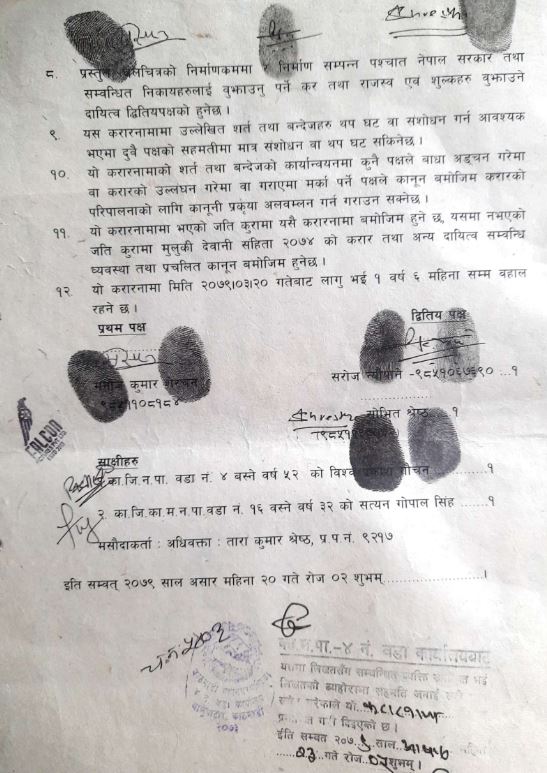 Shresth
८. प्रस्तुत चलचित्रको निर्माणक्रममा र निर्माण सम्पन्न पश्चात नेपाल सरकार तथा
सम्वन्धित निकायहरुलाई वुझाउनु पर्ने कर तथा राजस्व एवं शुल्कहरु वुझाउने
दायित्व द्वितियपक्षको हुनेछ ।
९. यस करारनामामा उल्लेखित शर्त तथा बन्देजहरु थप घट वा संशोधन गर्न आवश्यक
भएमा दुवै पक्षको सहमतीमा मात्र संशोधन वा थप घट सकिनेछ ।
१०. यो करारनामाको शर्त तथा बन्देजको कार्यान्वयनमा कुनै पक्षले बाधा अड्चन गरेमा
वा करारको उल्लंघन गरेमा वा गराएमा मर्का पर्ने पक्षले कानून बमोजिम करारको
परिपालनाको लागि कानूनी प्रकृया अलवम्लन गर्न गराउन सक्नेछ ।
११. यो करारनामामा भएको जति कुरामा यसै करारनामा बमोजिम हुने छ, यसमा नभएको
जति कुरामा मुलुकी देवानी संहिता २०७४ को करार तथा अन्य दायित्व सम्वन्धि
व्यवस्था तथा प्रचलित कानून बमोजिम हुनेछ ।
१२. यो करारनामा मिति २०७९।०३।२० गतेबाट लागु भई १ वर्ष ६ महिना सम्म वहाल
रहने छ ।
प्रथम पक्ष
द्वितिय पक्ष
कुमार
सरोज न्यौपाने -९८५१०६७६९० ...१
Shresth
शोभित श्रेष्ठ १
FALCON
साक्षीहरु
१. का.जि.न.पा. वडा नं. ४ बस्ने वर्ष ५२ को विश्व प्रकाश गौचन ...१
२. का.जि.का.म.न.पा.वडा नं. १६ वस्ने वर्ष ३२ को सत्यन गोपाल सिंह ......१
मसौदाकर्ता : अधिवक्ता : तारा कुमार श्रेष्ठ, प्र.प.नं. ९२१७
इति सम्वत् २०७९ साल असार महिना २० गते रोज ०२ शुभम्.....................।
च.नं ५०३
का.म.न.पा.-४ नं. वडा कार्यालयबाट
यसमा लिखतसँग सम्बन्धित व्यक्ति भई
लिखतको व्यहोरामा सहमति जनाई
गरेकाले यो
प्रमाणित गरी दिइएको छ ।
ईति सम्वत २०७९ साल
२३ गते रोज ०२ शुभम् ।